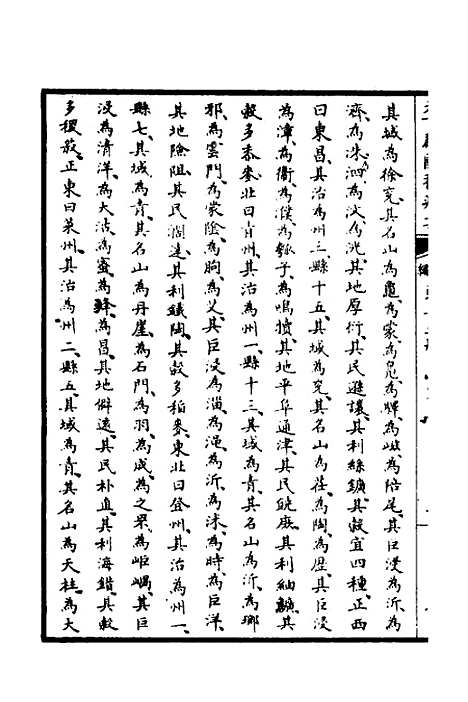 其域為徐兗其名山為龜為蒙為鳧為嶧為岐為陪尾其巨浸為沂為
濟為洙泗為汶為洸其地原衍其民遜讓其利絲鑛其穀宜四種正西
曰東昌其治為州三縣十五其域為兗其名山為茌為陶為歷其巨浸
為漳為衛為濮為瓠子為鳴犢其地平阜通津其民皖庶其利紬纊其
穀多黍麥北曰青州其治為州一縣十三其域為青其名山為沂為瑯
邪為雲門為蒙陰為朐為艾其巨浸為淄為澠為沂為沭為時為巨洋
其地險阻其民闊達其利鐵陶其穀多稻麥東北曰登州其治為州一
縣七其域為青其名山為丹崖為石門為羽為成為之罘為岠嵎其巨
浸為清洋為大沽為蜜為絳為昌其地僻遠其民朴直其利海錯其穀
多稷菽正東曰萊州其治為州二縣五其域為青其名山為天柱為大